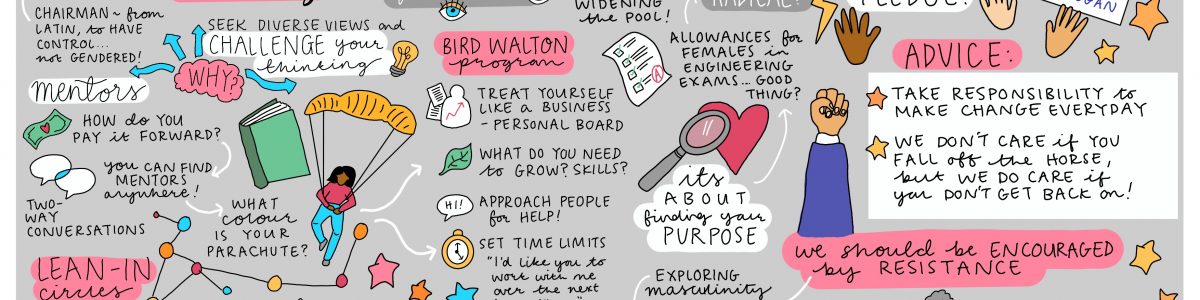 CHAIRMAN ~ from
LATIN, to HAVE
CONTROL...
not GENDERED!
SEEK DIVERSE VIEWS and
CHALLENGE your
thinking
WHY?
mentors
HOW do YOU
PAY it FORWARD?
you CAN FIND
MENTORS
anywhere!
TWO-
WAY
CONVERSATIONS
WHAT
colour
IS YOUR
PARACHUTE?
LEAN-IN
circles
BIRD WALTON
program
TREAT YOURSELF
LIKE a BUSINESS
~ PERSONAL BOARD
WHAT DO YOU NEED
to GROW? SKILLS?
HI!
APPROACH PEOPLE
for HELP!
SET TIME LIMITS
"I'd like you to
work with me
over the next
WIDENING
the POOL!
RADICAL?
A
ALLOWANCES for
FEMALES in
ENGINEERING
EXAMS... GOOD
THING?
its
ABOUT
finding your
PURPOSE
EXPLORING
masculinity
PLEDGE!
ADVICE:
TAKE RESPONSIBILITY to
MAKE CHANGE EVERYDAY
WE DON'T CARE if YOU
FALL off the HORSE,
but WE DO CARE if
you DON'T GET BACK on!
we should be ENCOURAGED
by RESISTANCE